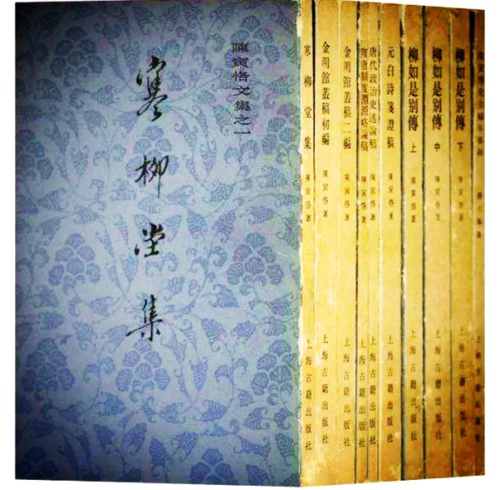 陳寅恪文集之一
寒柳堂集
寒柳堂集 陳寅恪著 上海古籍出版社
金明館叢稿初編 陳寅恪著 上海古籍出版社
金明館叢稿二編 陳寅恪著 上海古籍出版社
隋唐制度淵源略論稿 陳寅恪著 上海古籍出版社
唐代政治史述論稿 陳寅恪著 上海古籍出版社
元白詩箋證稿 陳寅恪著 上海古籍出版社
柳如是別傳 上 陳寅恪著 上海古籍出版社
柳如是別傳 中 陳寅恪著 上海古籍出版社
柳如是別傳 下 陳寅恪著 上海古籍出版社